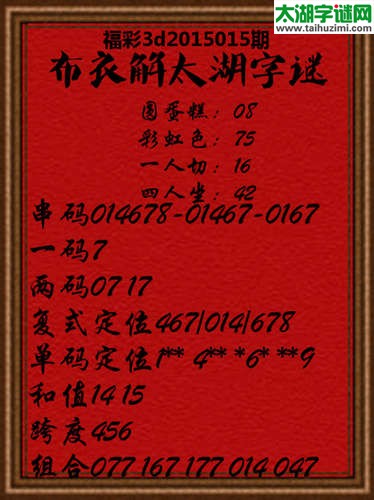 太湖字谜网
www.taihuzimi.com
福彩3d2015015期
布衣解太湖字谜
圆蛋糕：08
彩虹色：75
一人切：16
四人坐：42
串码014678-01467-0167
一码7
两码07 17
复式定位467|014|678
单码定位1** 4** *6* **9
和值14 15
跨度456
组合077 167 177 014 047